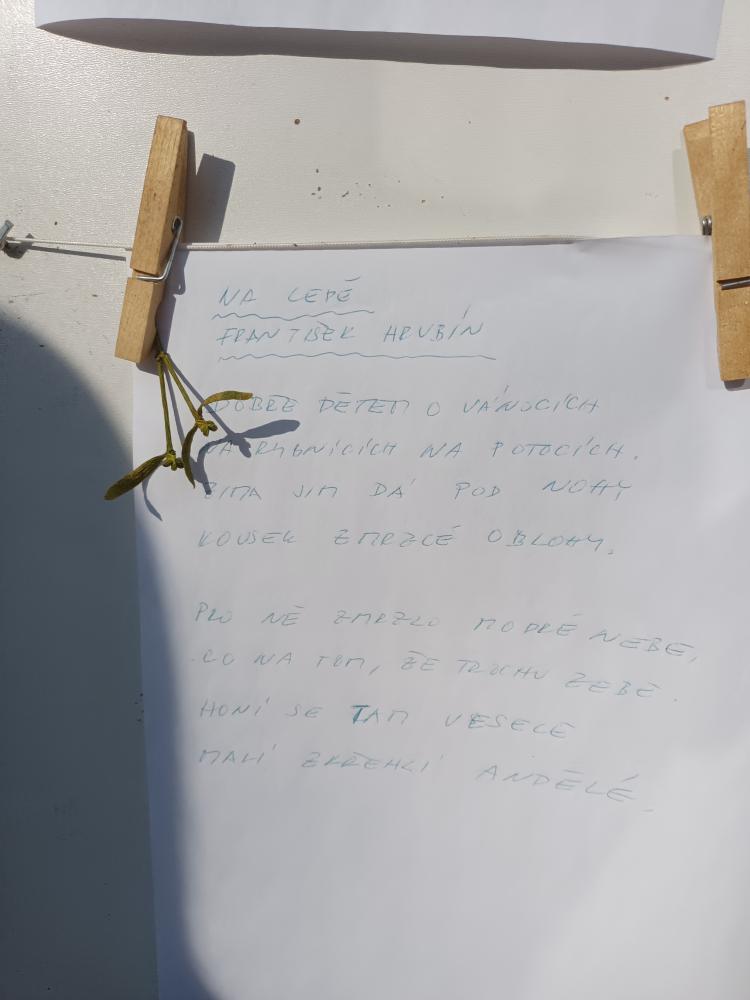 NA LEDĚ
FRANTIŠEK HRUBÍN
DOBŘE DĚTEM O VÁNOCÍCH
NA RYBNÍCÍCH NA POTOCÍCH.
ZIMA JIM DÁ POD NOHY
KOUSEK ZMRZLÉ OBLOHY.
PRO NĚ ZMRZLO MODRÉ NEBE,
CO NA TOM, ŽE TROCHU ZEBE.
HONÍ SE TAM VESELE
MALÍ ZKŘEHLÍ ANDĚLÉ.